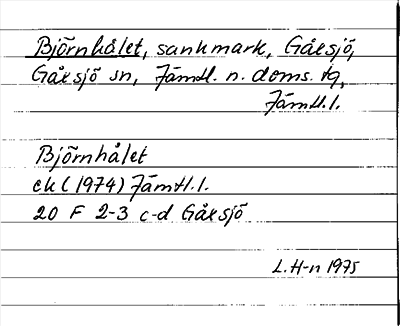 Björnhålet, sankmark, Gåxsjö,
Gåxsjö sn, Jämtl. n. doms. tg,
Jämtl. l.
Björnhålet
ek (1974) Jämtl. l.
20 F 2-3 c-d Gåxsjö
L. H-n 1975